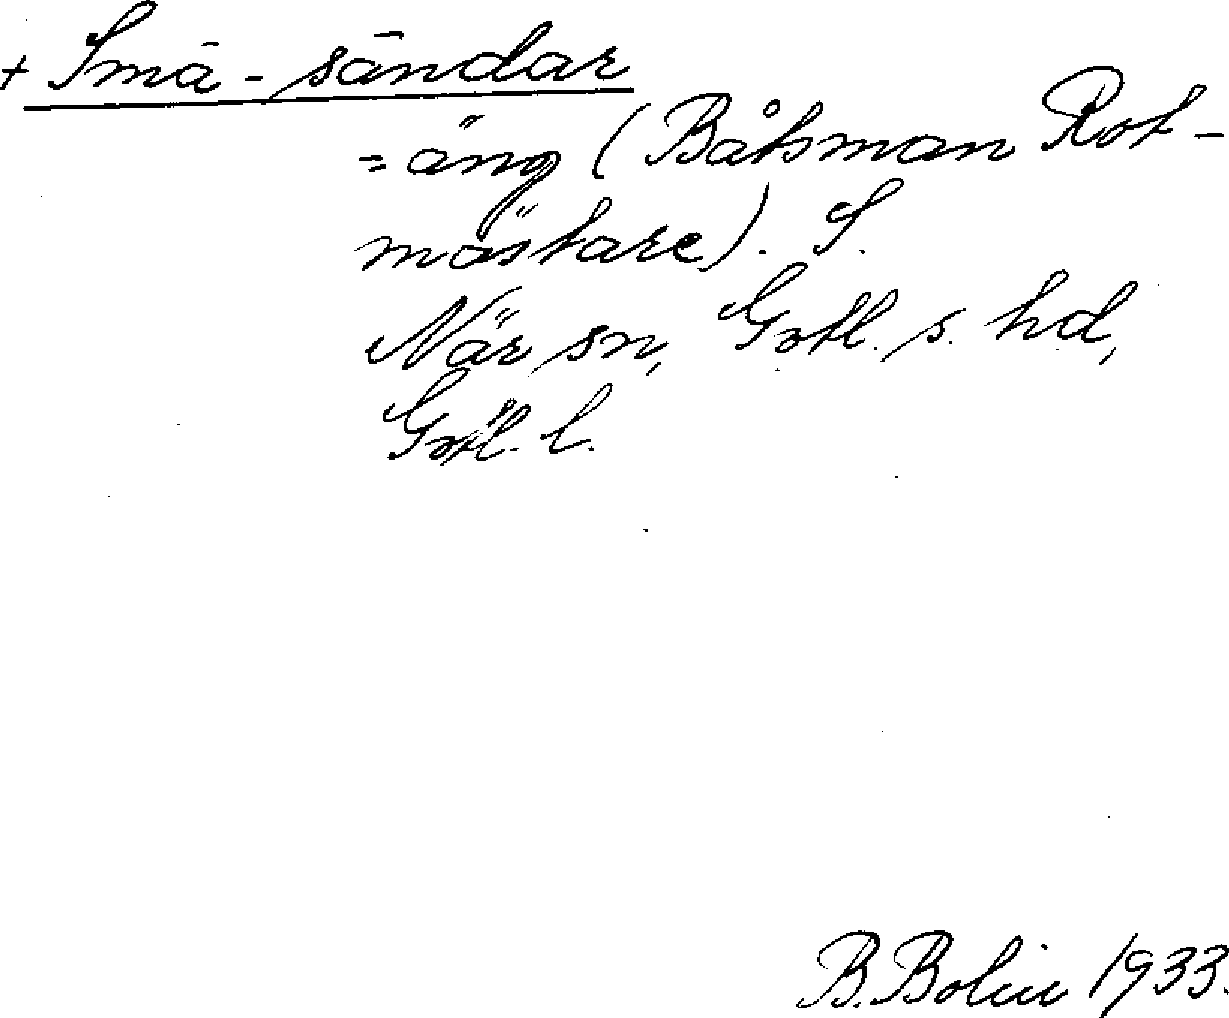 + Smā-sāndar
= äng (Båtsman Rot-
mästare). S.
När sn, Gotl. s. hd,
Gotl. l.
B. Bolin 1933.